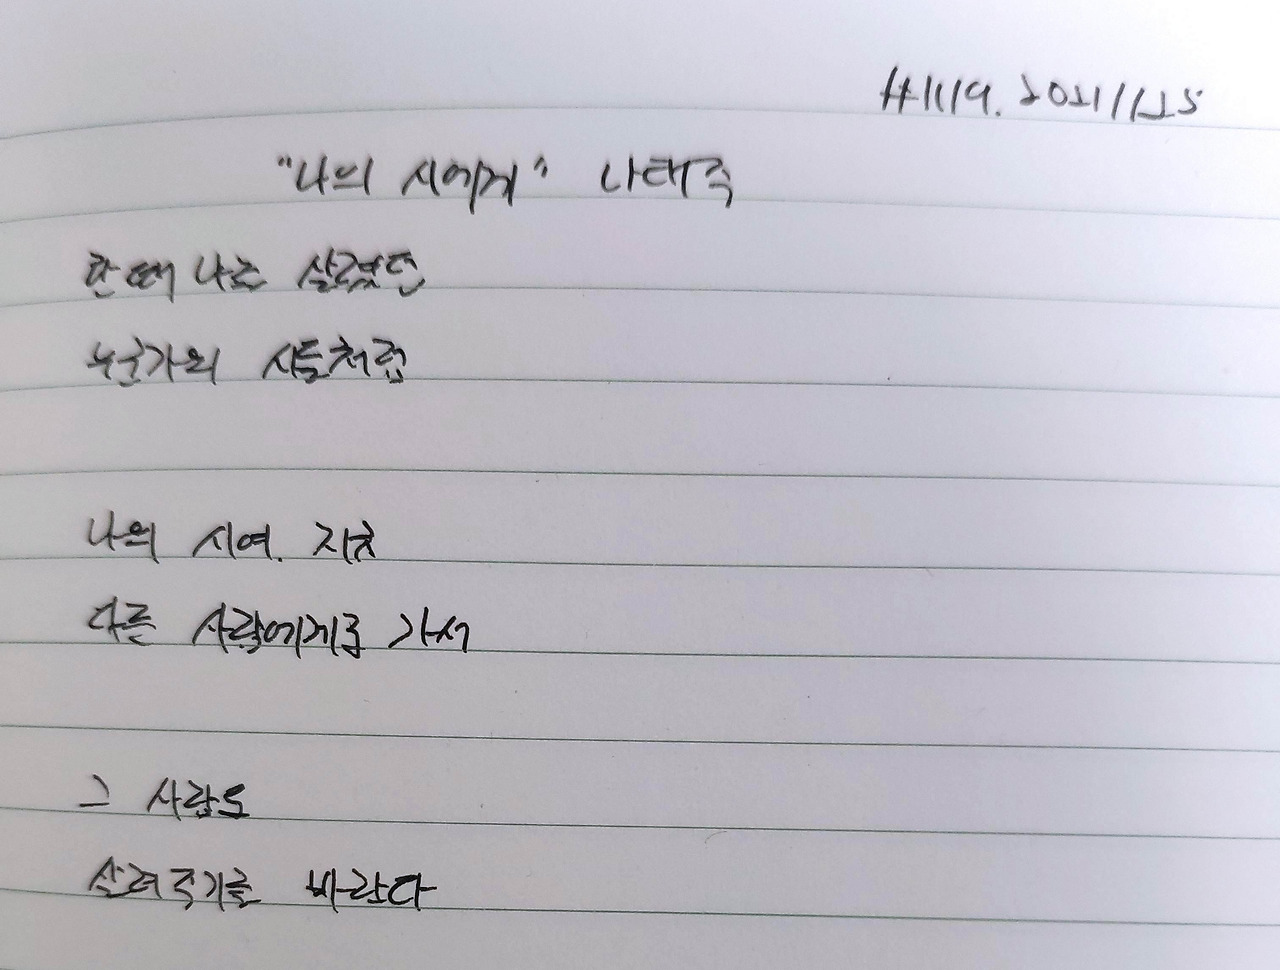 #1119. 2021/1125
"나의 시에게" 나태주
한때 나를 살렸던
누군가의 시들처럼
나의 시여. 지금
다른 사람에게로 가서
그 사람도
살려주기를 바란다